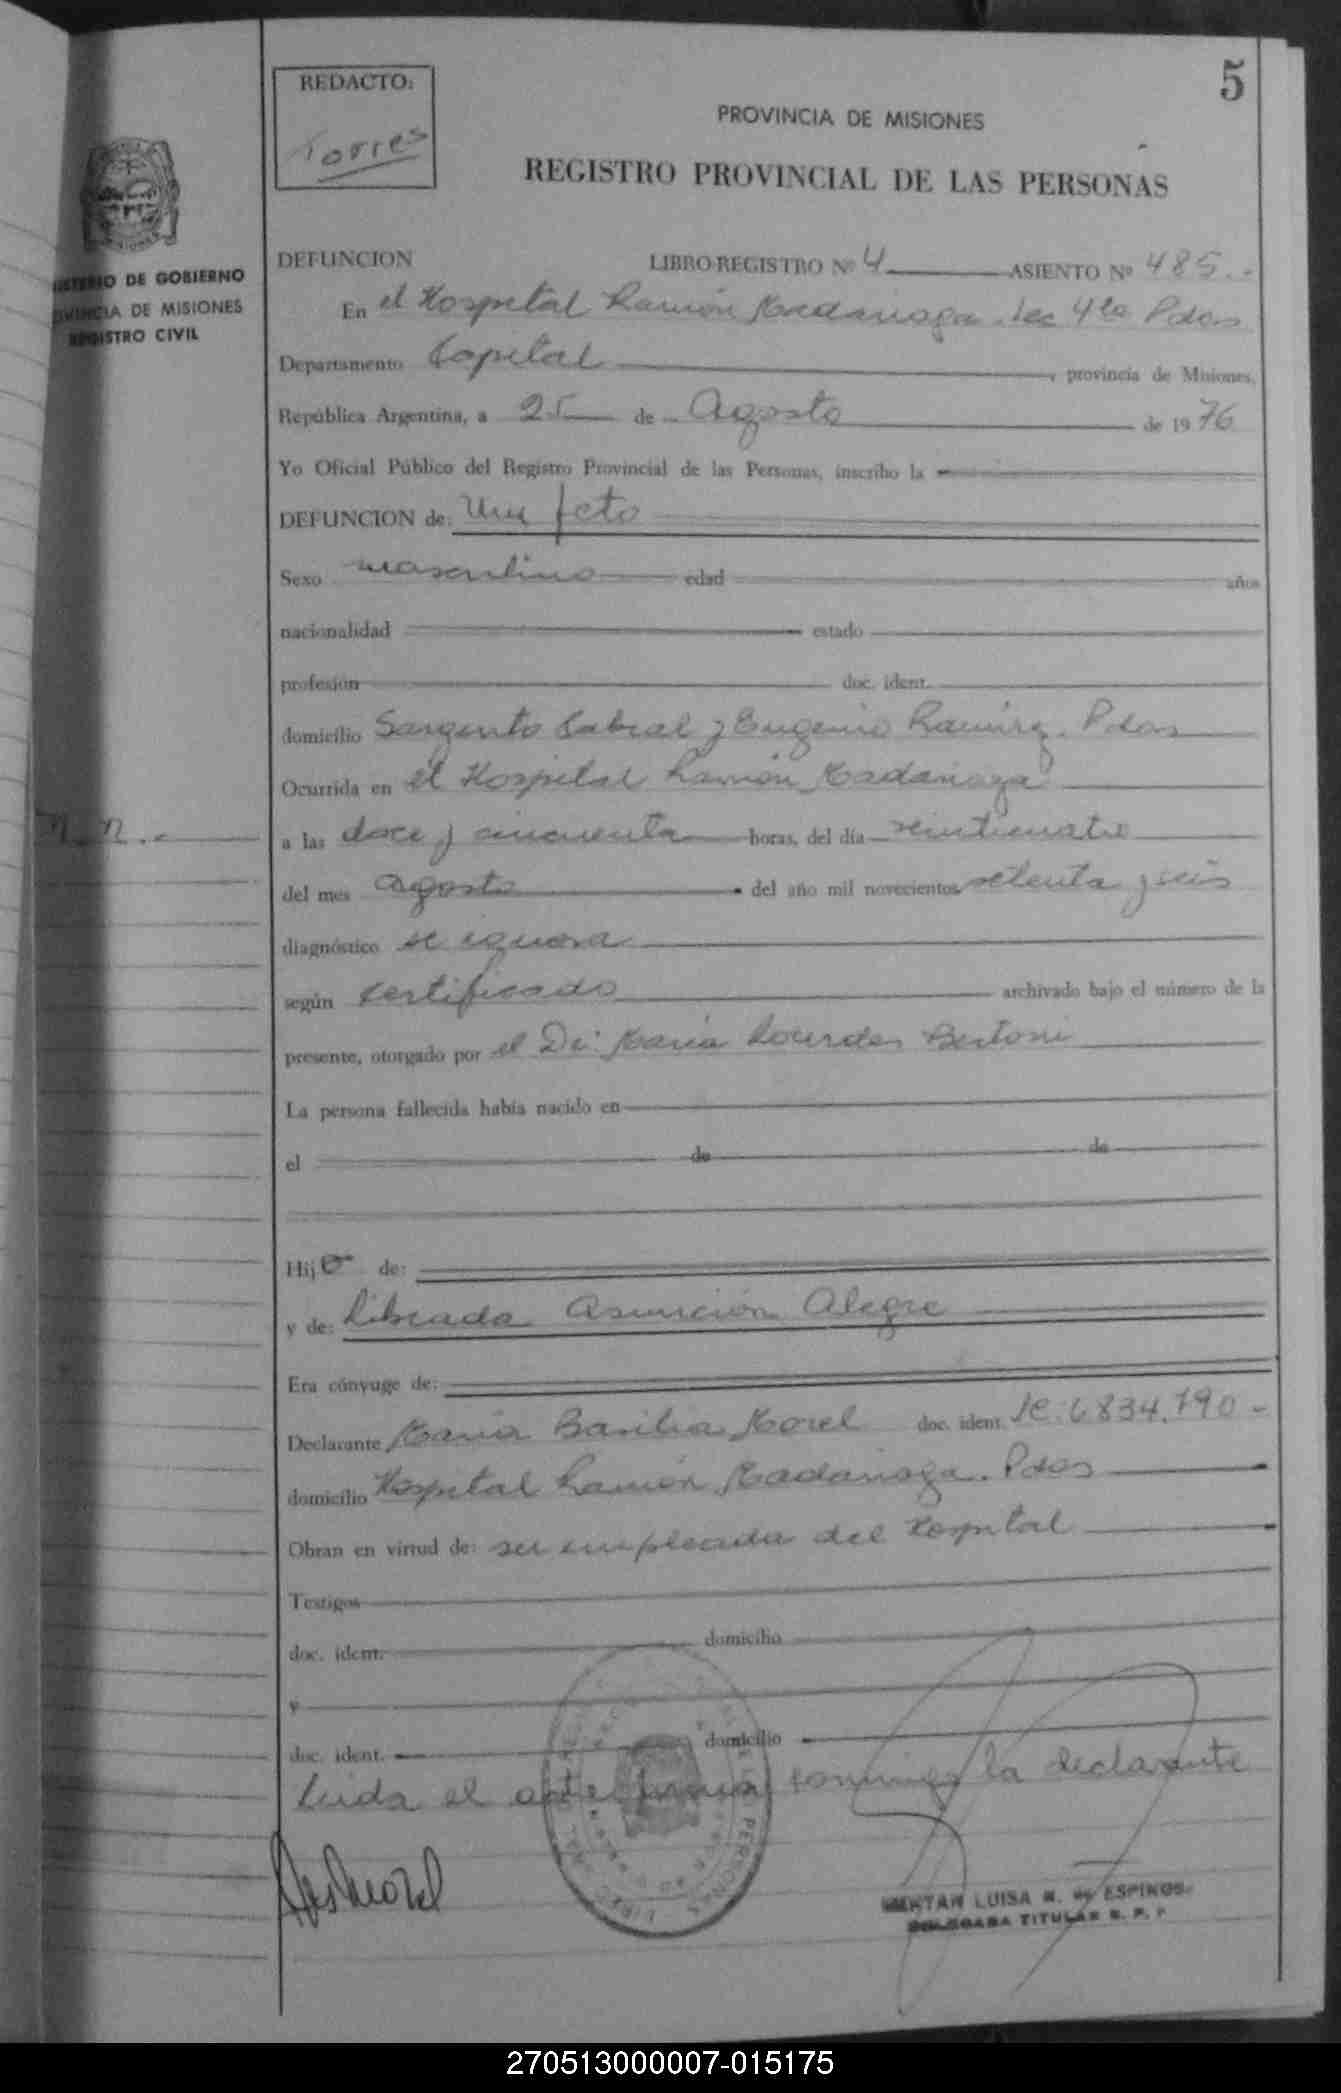 5
REDACTO:
Torres
PROVINCIA DE MISIONES
REGISTRO PROVINCIAL DE LAS PERSONAS
DE GOBIERNO
DE MISIONES
REGISTRO CIVIL
DEFUNCION LIBRO-REGISTRO Nº 4 ASIENTO Nº 485.-
En el Hospital Ramón Madariaga. Sec 4ta Pdas
Departamento Capital, provincia de Misiones,
República Argentina, a 25 de Agosto de 1976
Yo Oficial Público del Registro Provincial de las Personas, inscribo la
DEFUNCION de: Un feto
Sexo masculino edad años
nacionalidad estado
profesión doc. ident.
domicilio Sargento Cabral y Eugenio Ramirez. Pdas
Ocurrida en el Hospital Ramón Madariaga
N. N. -
a las doce y cincuenta horas, del día veinticuatro
del mes agosto del año mil novecientos setenta y seis
diagnóstico se ignora
según certificado archivado bajo el número de la
presente, otorgado por el Dr: María Lourdes Bertoni
La persona fallecida había nacido en
el de de
Hijo de:
y de: Librada Asunción Alegre
Era cónyuge de:
Declarante María Basilia Morel doc. ident. 6834.790-
domicilio Hospital Ramón Madariaga. Pdas
Obran en virtud de: ser empleada del Hospital
Testigos
doc. ident. domicilio
y
doc. ident. domicilio
Leida el acta firma conmigo la declarante
Morel
LUISA N. de ESPINOS
TITULAR R. P. P
270513000007-015175